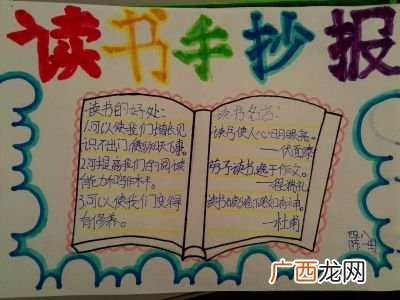 读书手抄报
读书的好处:
1.可以使我们增长见
识,不出门便知天下事。
2.可提高我们的阅读
能力和写作水平。
3.可以使我们变得
有修养。
读书名言:
读书使人心明眼亮。
—伏尔泰
劳于读书,逸于作文。
—程端礼
读书破万卷,下笔如有神。
—杜甫
四、八
陈一
广西龙网